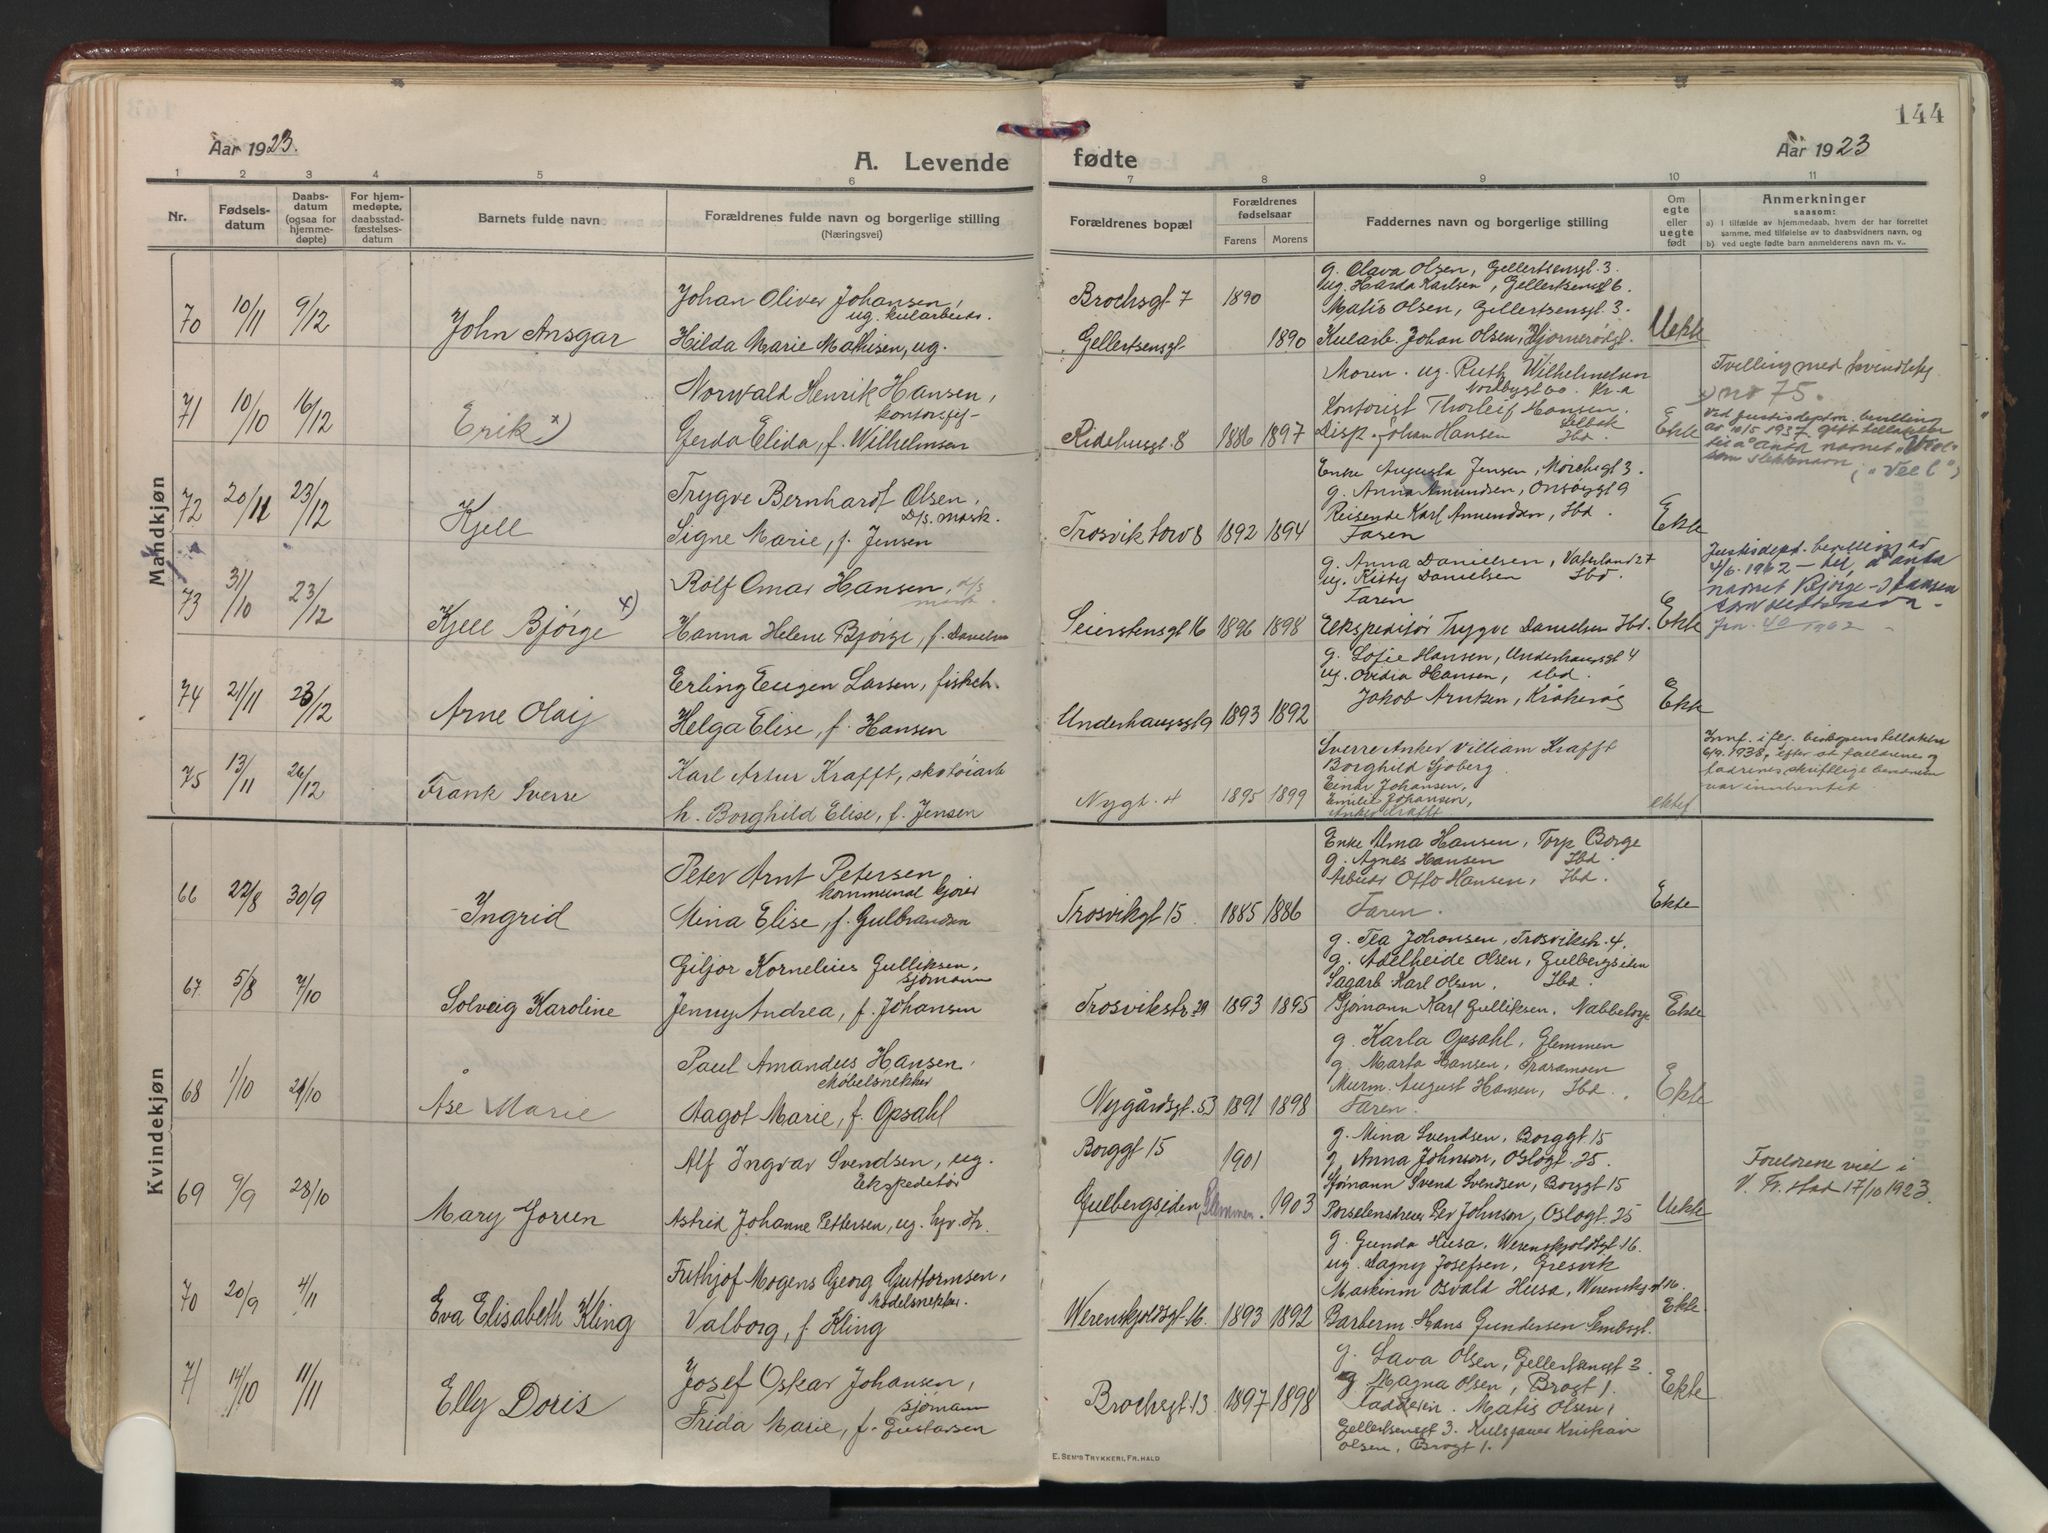 144
Aar 1923.
A. Levende
fødte
Aar 1923
1 2 3 4 5 6 7 8 9 10 11
Nr.
Fødsels-
datum
Daabs-
datum
(ogsaa for
hjemme-
døpte)
For hjem-
medøpte,
daabsstad-
fæstelses-
datum
Barnets fulde navn
Forældrenes fulde navn og borgerlige stilling
(Næringsvei)
Forældrenes bopæl
Forældrenes
fødselsaar
Farens Morens
Faddernes navn og borgerlige stilling
Om
egte
eller
uegte
født
Anmerkninger
saasom:
a) i tilfælde av hjemmedaab, hvem der har forrettet
samme, med tilføielse av to daabsvidners navn, og
b) ved uegte fødte barn anmelderens navn m. v..
Mandkjøn
70 10/11 9/12 John Ansgar
Johan Oliver Johansen,
ug. kularbeids.
Hilda Marie Mathisen, ug.
Brochsgt 7 1890
Gellertsensgt 1890
g. Olava Olsen, Gellertsensgt 3.
ug. Harda Karlsen, Gellertsensgt 6.
Matis Olsen, Gellertsensgt 3.
Kularb. Johan Olsen, Hjørnerødgt.
Uekte
71 10/10 16/12 Erik x)
Norvald Henrik Hansen,
kontorsjef
Gerda Elida, f. Wilhelmsen
Ridehusgt 8 1886 1897
Moren. ug. Ruth Wilhelmsen
Nordbygt 60. Kr.a
Kontorist Thorleif Hansen.
Selbak
Disp. Johan Hansen Ibd.
Ekte
Tvilling med kvindekj.
no 75.
x) Ved Justisdeptm. bevilling
av 10/5 1937 gitt tillatelse
til å anta navnet
som slektsnavn, ("Veel")
72 20/11 23/12 Kjell
Trygve Bernhardt Olsen,
D/s. mask.
Signe Marie, f. Jensen
Trosvik torv 8 1892 1894
Enke Augusta Jensen, Mørchsgt 3.
g. Anna Amundsen, Onsøygt 9
Reisende Karl Amundsen, Ibd.
Faren
Ekte
73 31/10 23/12 Kjell Bjørge x)
Rolf Omar Hansen, d/s
mask.
Hanna Helene Bjørge, f. Danielsen
Seierstensgt 16 1896 1898
g. Anna Danielsen, Vaterland 27
ug. Kitty Danielsen Ibd
Faren
Ekspeditør Trygve Danielsen Ibd.
Ekte
Justisdept. bevilling av
4/6. 1962 – til å anta
navnet Bjørge-Hansen
som slektsnavn.
Jrn. 40/1962
74 21/11 23/12 Arne Olaij
Erling Eugen Larsen, fiskeh.
Helga Elise, f. Hansen
Underhaugsgt 9 1893 1892
g. Sofie Hansen, Underhaugsgt 4
ug. Ovidia Hansen, ibd.
Jakob Arntsen, Kråkerøy
Ekte
75 13/11 26/12 Frank Sverre
Karl Artur Krafft, skotøiarb
h. Borghild Elise, f. Jensen
Nygt. 4 1895 1899
Sverre Anker Villiam Krafft
Borghild Sjøberg
Einar Johansen,
Emilie Johansen,
Anker Krafft
ektef
Innf. i flg. biskopens tillatelse
6/9. 1938, efter at foreldrenes og
fadrenes skriftlige bevidnelse
var innhentet.
Kvindekjøn
66 22/8 30/9 Ingrid
Peter Arnt Petersen
kommunal kjører
Mina Elise, f. Gulbrandsen
Trosvikgt 15 1885 1886
Enke Alma Hansen, Torp Borge
g. Agnes Hansen Ibd.
Arbeids Otto Hansen, Ibd.
Faren.
Ekte
67. 5/8 7/10 Solveig Karoline
Giljor Kornelius Gulliksen,
sjømann
Jenny Andrea, f. Johansen
Trosvikstr. 29 1893 1895
g. Tea Johansen, Trosvikstr. 4.
g. Adelheide Olsen, Gulbergsiden
Sagarb Karl Olsen, Ibd.
Sjømann Karl Gulliksen. Nabbetorp
Ekte
68 1/10 21/10 Åse Marie
Paul Amandus Hansen,
Møbelsnekker
Aagot Marie, f. Opsahl
Nygårdsgt. 53 1891 1898
g. Karla Opsahl, Glemmen
g. Marta Hansen,
Murm. August Hansen, Ibd.
Faren.
Ekte
69 9/9 28/10 Mary Jorun
Alf Ingvar Svendsen, ug.
Ekspeditør
Astrid Johanne Pettersen, ug.
Borggt 15 1901
Gulbergsiden, Glemmen. 1903
g. Mina Svendsen, Borggt. 15
g. Anna Johnson, Oslogt. 25.
Sjømann Svend Svendsen, Borggt 15
Porselensdreier Per Johnson, Oslogt. 25
Uekte
Foreldrene viet i
V. Fr.stad 17/10 1923.
70 20/9 4/11 Eva Elisabeth Kling
Frithjof Mogens Georg Guttormsen,
Modelsnekker.
Valborg, f. Kling
Werenskjoldsgt. 16. 1893 1892
g. Gunda Husa, Werenskjoldsgt 16.
ug. Dagny Josefsen, Gresvik
Maskinm Osvald Husa, Werenskjgt 16.
Barberm. Hans Gundersen Sembsgt.
Ekte
71 14/10 11/11 Elly Doris
Josef Oskar Johansen,
sjømann
Frida Marie, f. Gustavsen
Brochsgt 13 1897 1898
g. Lava Olsen, Gellertsensgt 3
g Magna Olsen, Brogt 1.
Fadderen. Matis Olsen,
Gellertsensgt 3. Kristian
Olsen, Brogt 1.
Ekte
E. SEM'S TRYKKERI, FR.HALD